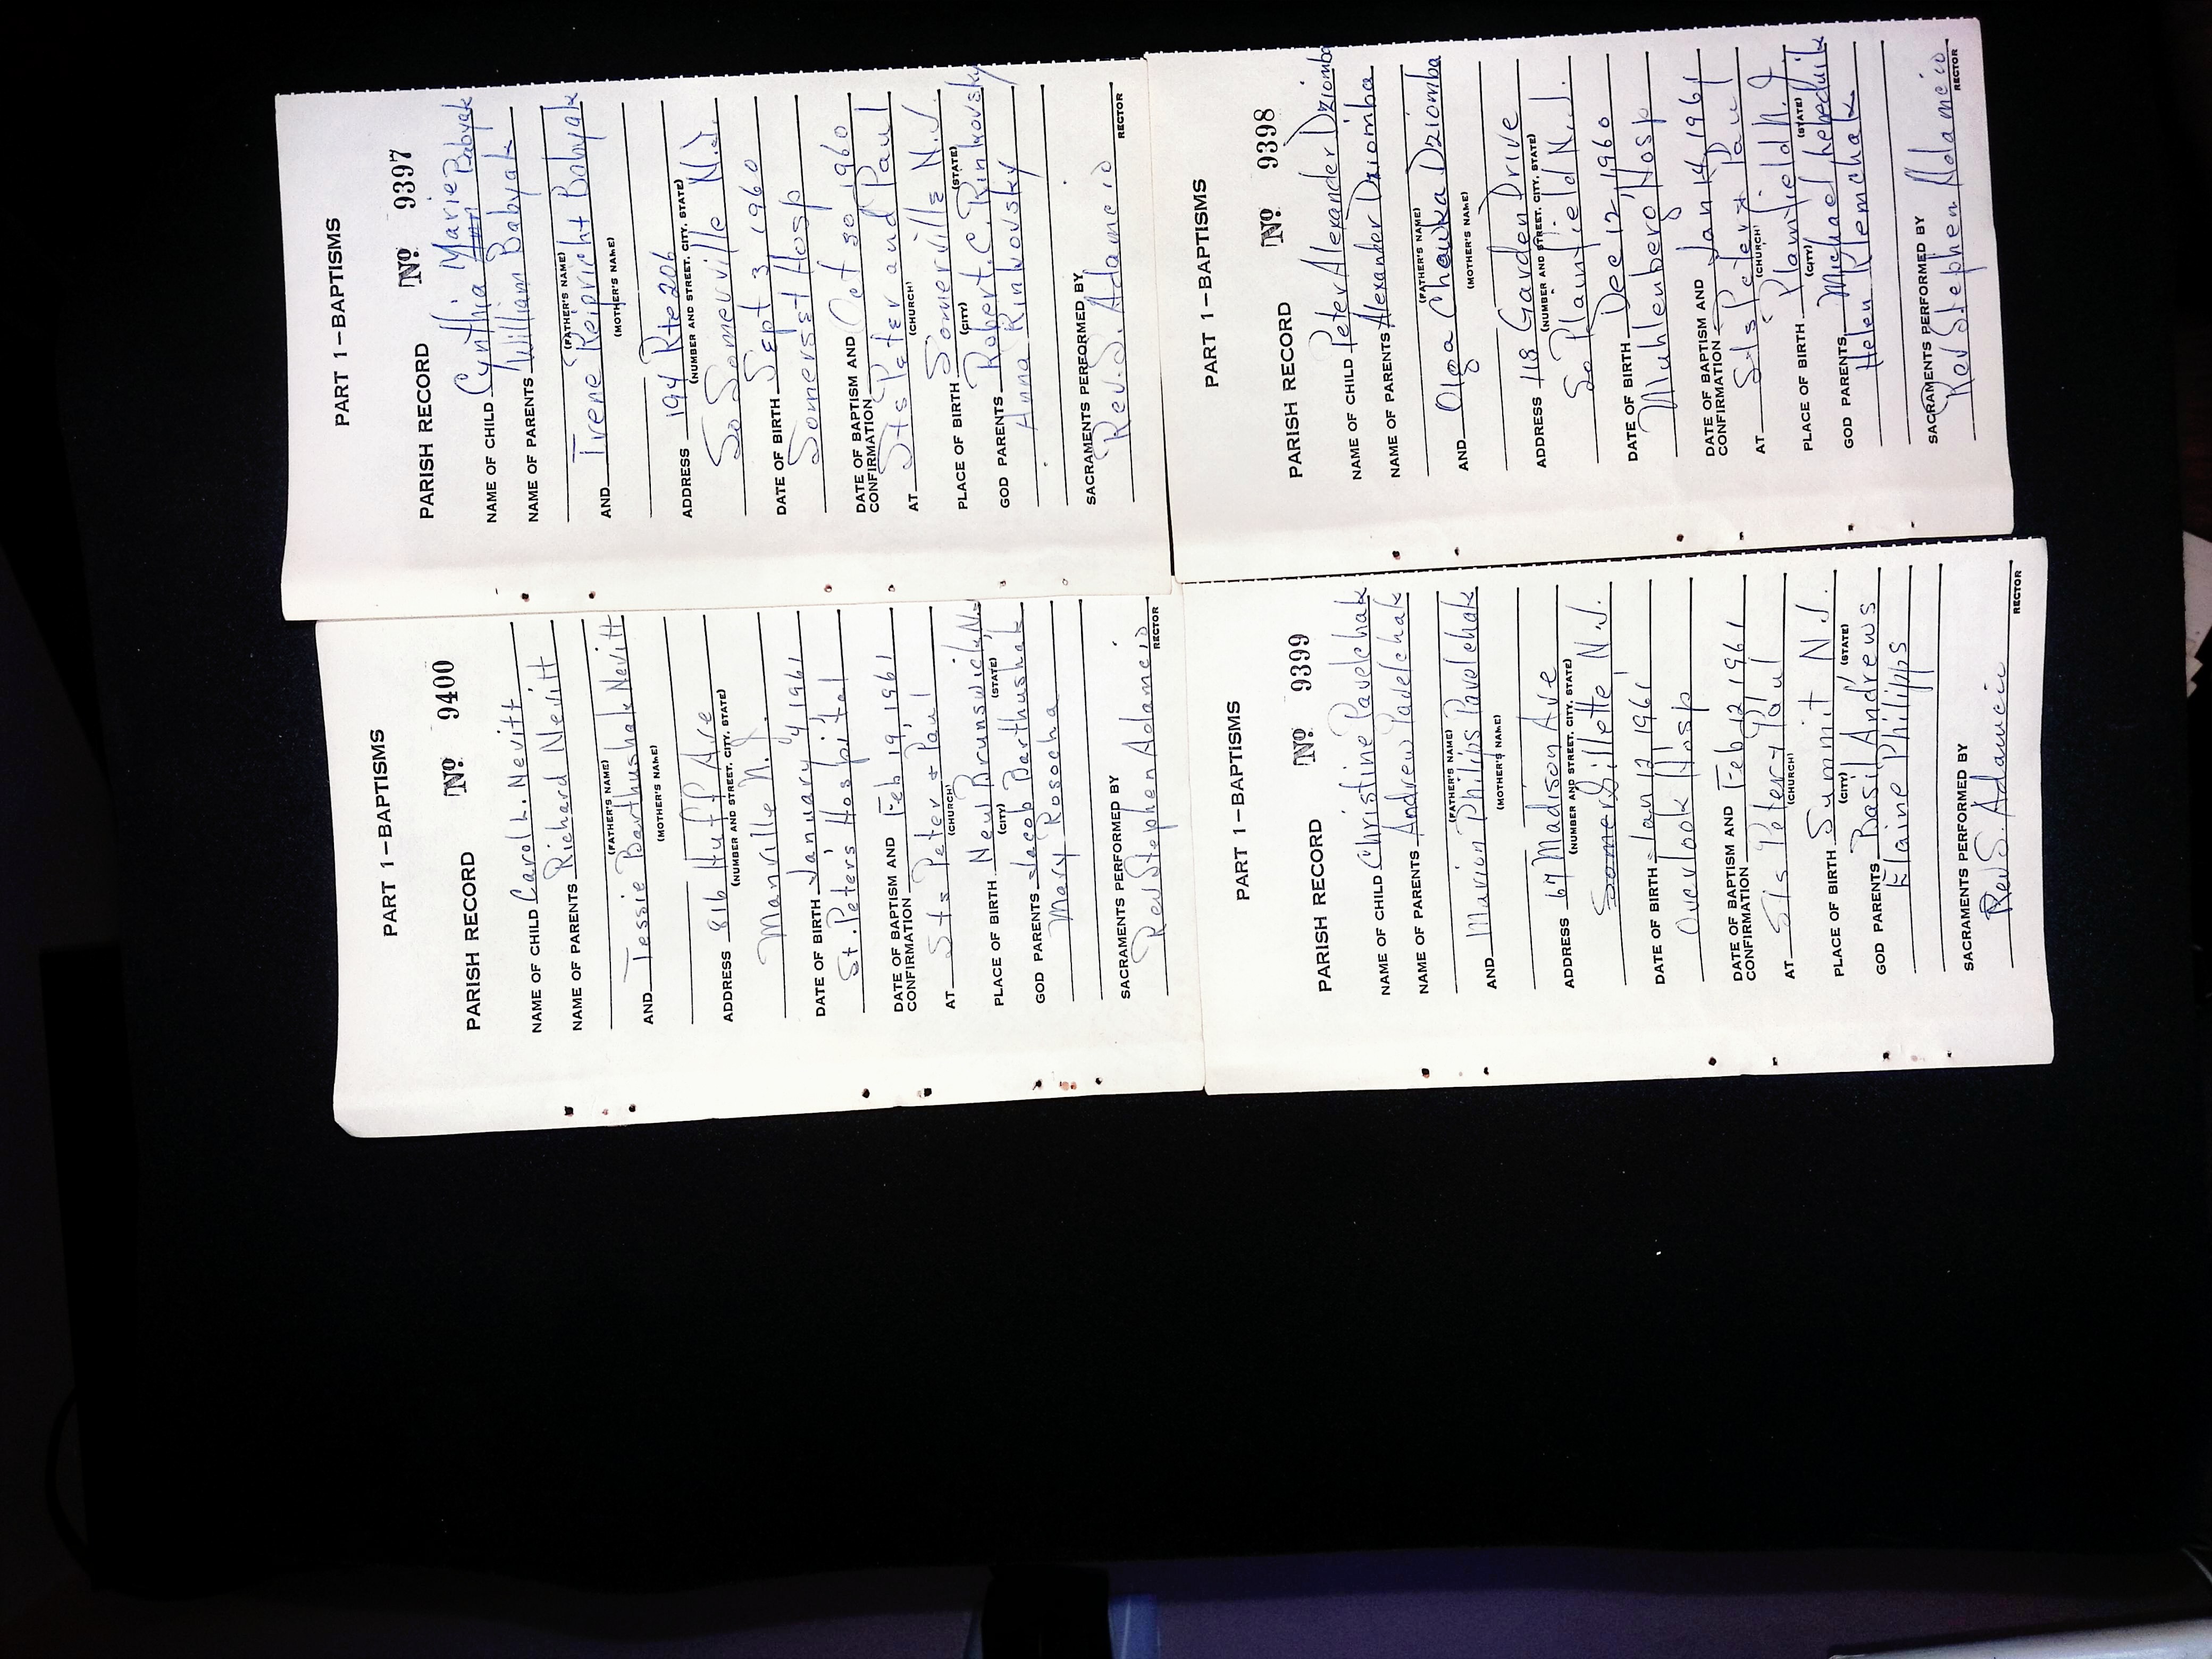 PART 1-BAPTISMS
PARISH RECORD No 9400
NAME OF CHILD Carol L. Nevitt
NAME OF PARENTS Richard Nevitt
(FATHER'S NAME)
AND Tessie Barthushak Nevitt
(MOTHER'S NAME)
ADDRESS 816 Huff Ave
(NUMBER AND STREET, CITY, STATE)
Manville N.J.
DATE OF BIRTH January 4, 1961
St. Peter's Hospital
DATE OF BAPTISM AND
CONFIRMATION Feb 19, 1961
AT Sts Peter & Paul
(CHURCH)
PLACE OF BIRTH New Brunswick, N.J
(CITY) (STATE)
GOD PARENTS Jacob Barthushak
Mary Rosocha
SACRAMENTS PERFORMED BY
Rev Stephen Adamcio
RECTOR
PART 1-BAPTISMS
PARISH RECORD No 9397
Marie
NAME OF CHILD Cynthia Ann Babyak
NAME OF PARENTS William Babyak
(FATHER'S NAME)
AND Irene Reipricht Babyak
(MOTHER'S NAME)
ADDRESS 194 Rte 206
(NUMBER AND STREET, CITY, STATE)
So Somerville N.J.
DATE OF BIRTH Sept 3, 1960
Somerset Hosp
DATE OF BAPTISM AND
CONFIRMATION Oct 30, 1960
AT Sts Peter and Paul
(CHURCH)
PLACE OF BIRTH Somerville N.J.
(CITY) (STATE)
GOD PARENTS Robert. C. Rinkovsky
Anna Rinkovsky
SACRAMENTS PERFORMED BY
Rev. S. Adamcio
RECTOR
PART 1-BAPTISMS
PARISH RECORD No 9399
NAME OF CHILD Christine Pavelchak
NAME OF PARENTS Andrew Pavelchak
(FATHER'S NAME)
AND Marion Philips Pavelchak
(MOTHER'S NAME)
ADDRESS 67 Madison Ave
(NUMBER AND STREET, CITY, STATE)
Somer Gillette, N.J.
DATE OF BIRTH Jan 12, 1961
Overlook Hosp
DATE OF BAPTISM AND
CONFIRMATION Feb 12, 1961
AT Sts Peter & Paul
(CHURCH)
PLACE OF BIRTH Summit N.J.
(CITY) (STATE)
GOD PARENTS Basil Andrews
Elaine Philipps
SACRAMENTS PERFORMED BY
Rev S. Adamcio
RECTOR
PART 1-BAPTISMS
PARISH RECORD No 9398
NAME OF CHILD Peter Alexander Dziomba
NAME OF PARENTS Alexander Dziomba
(FATHER'S NAME)
AND Olga Chowka Dziomba
(MOTHER'S NAME)
ADDRESS 118 Garden Drive
(NUMBER AND STREET, CITY, STATE)
So Plainfield N.J.
DATE OF BIRTH Dec 12, 1960
Muhlenberg Hosp
DATE OF BAPTISM AND
CONFIRMATION Jan 14, 1961
AT Sts Peter & Paul
(CHURCH)
PLACE OF BIRTH Plainfield N.J.
(CITY) (STATE)
GOD PARENTS Michael Lebedwik
Helen Klemchak
SACRAMENTS PERFORMED BY
Rev Stephen Adamcio
RECTOR